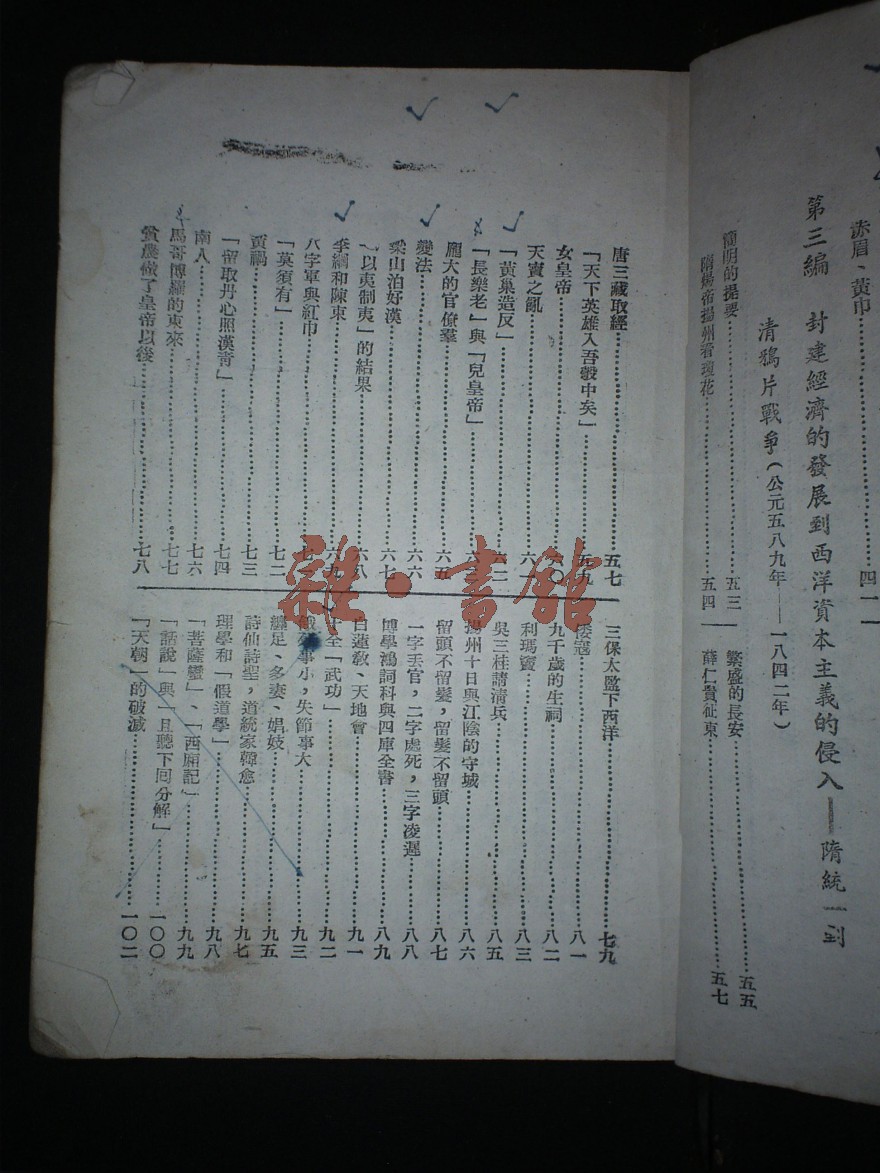 赤眉、黃巾……四一
第三編 封建經濟的發展到西洋資本主義的侵入——隋統一到
清鴉片戰爭(公元五八九年——一八四二年)
簡明的提要……五三
隋煬帝揚州看瓊花……五四
繁盛的長安……五五
薛仁貴征東……五七
唐三藏取經……五七
「天下英雄入吾彀中矣」……五九
女皇帝……六〇
天寶之亂……六一
「黃巢造反」……六二
「長樂老」與「兒皇帝」
龐大的官僚羣……六五
變法……六六
梁山泊好漢……六七
「以夷制夷」的結果……六八
李綱和陳東……六九
八字軍與紅巾
「莫須有」……七二
貢禍……七三
「留取丹心照漢青」……七四
南人……七六
馬哥博羅的東來……七七
貧農做了皇帝以後……七八
三保太監下西洋……七九
倭寇……八一
九千歲的生祠……八二
利瑪竇……八三
吳三桂請清兵……八五
揚州十日與江陰的守城……八六
留頭不留髮,留髮不留頭……八七
一字丟官,二字處死,三字凌遲……八八
博學鴻詞科與四庫全書……八九
白蓮教、天地會……九一
十全「武功」……九二
餓死事小,失節事大……九三
纏足、多妻、娼妓……九五
詩仙詩聖,道統家韓愈……九七
理學和「假道學」……九八
「菩薩蠻」、「西廂記」……九九
「話說」與「且聽下回分解」……一〇〇
「天朝」的破滅……一〇二
雜·書館